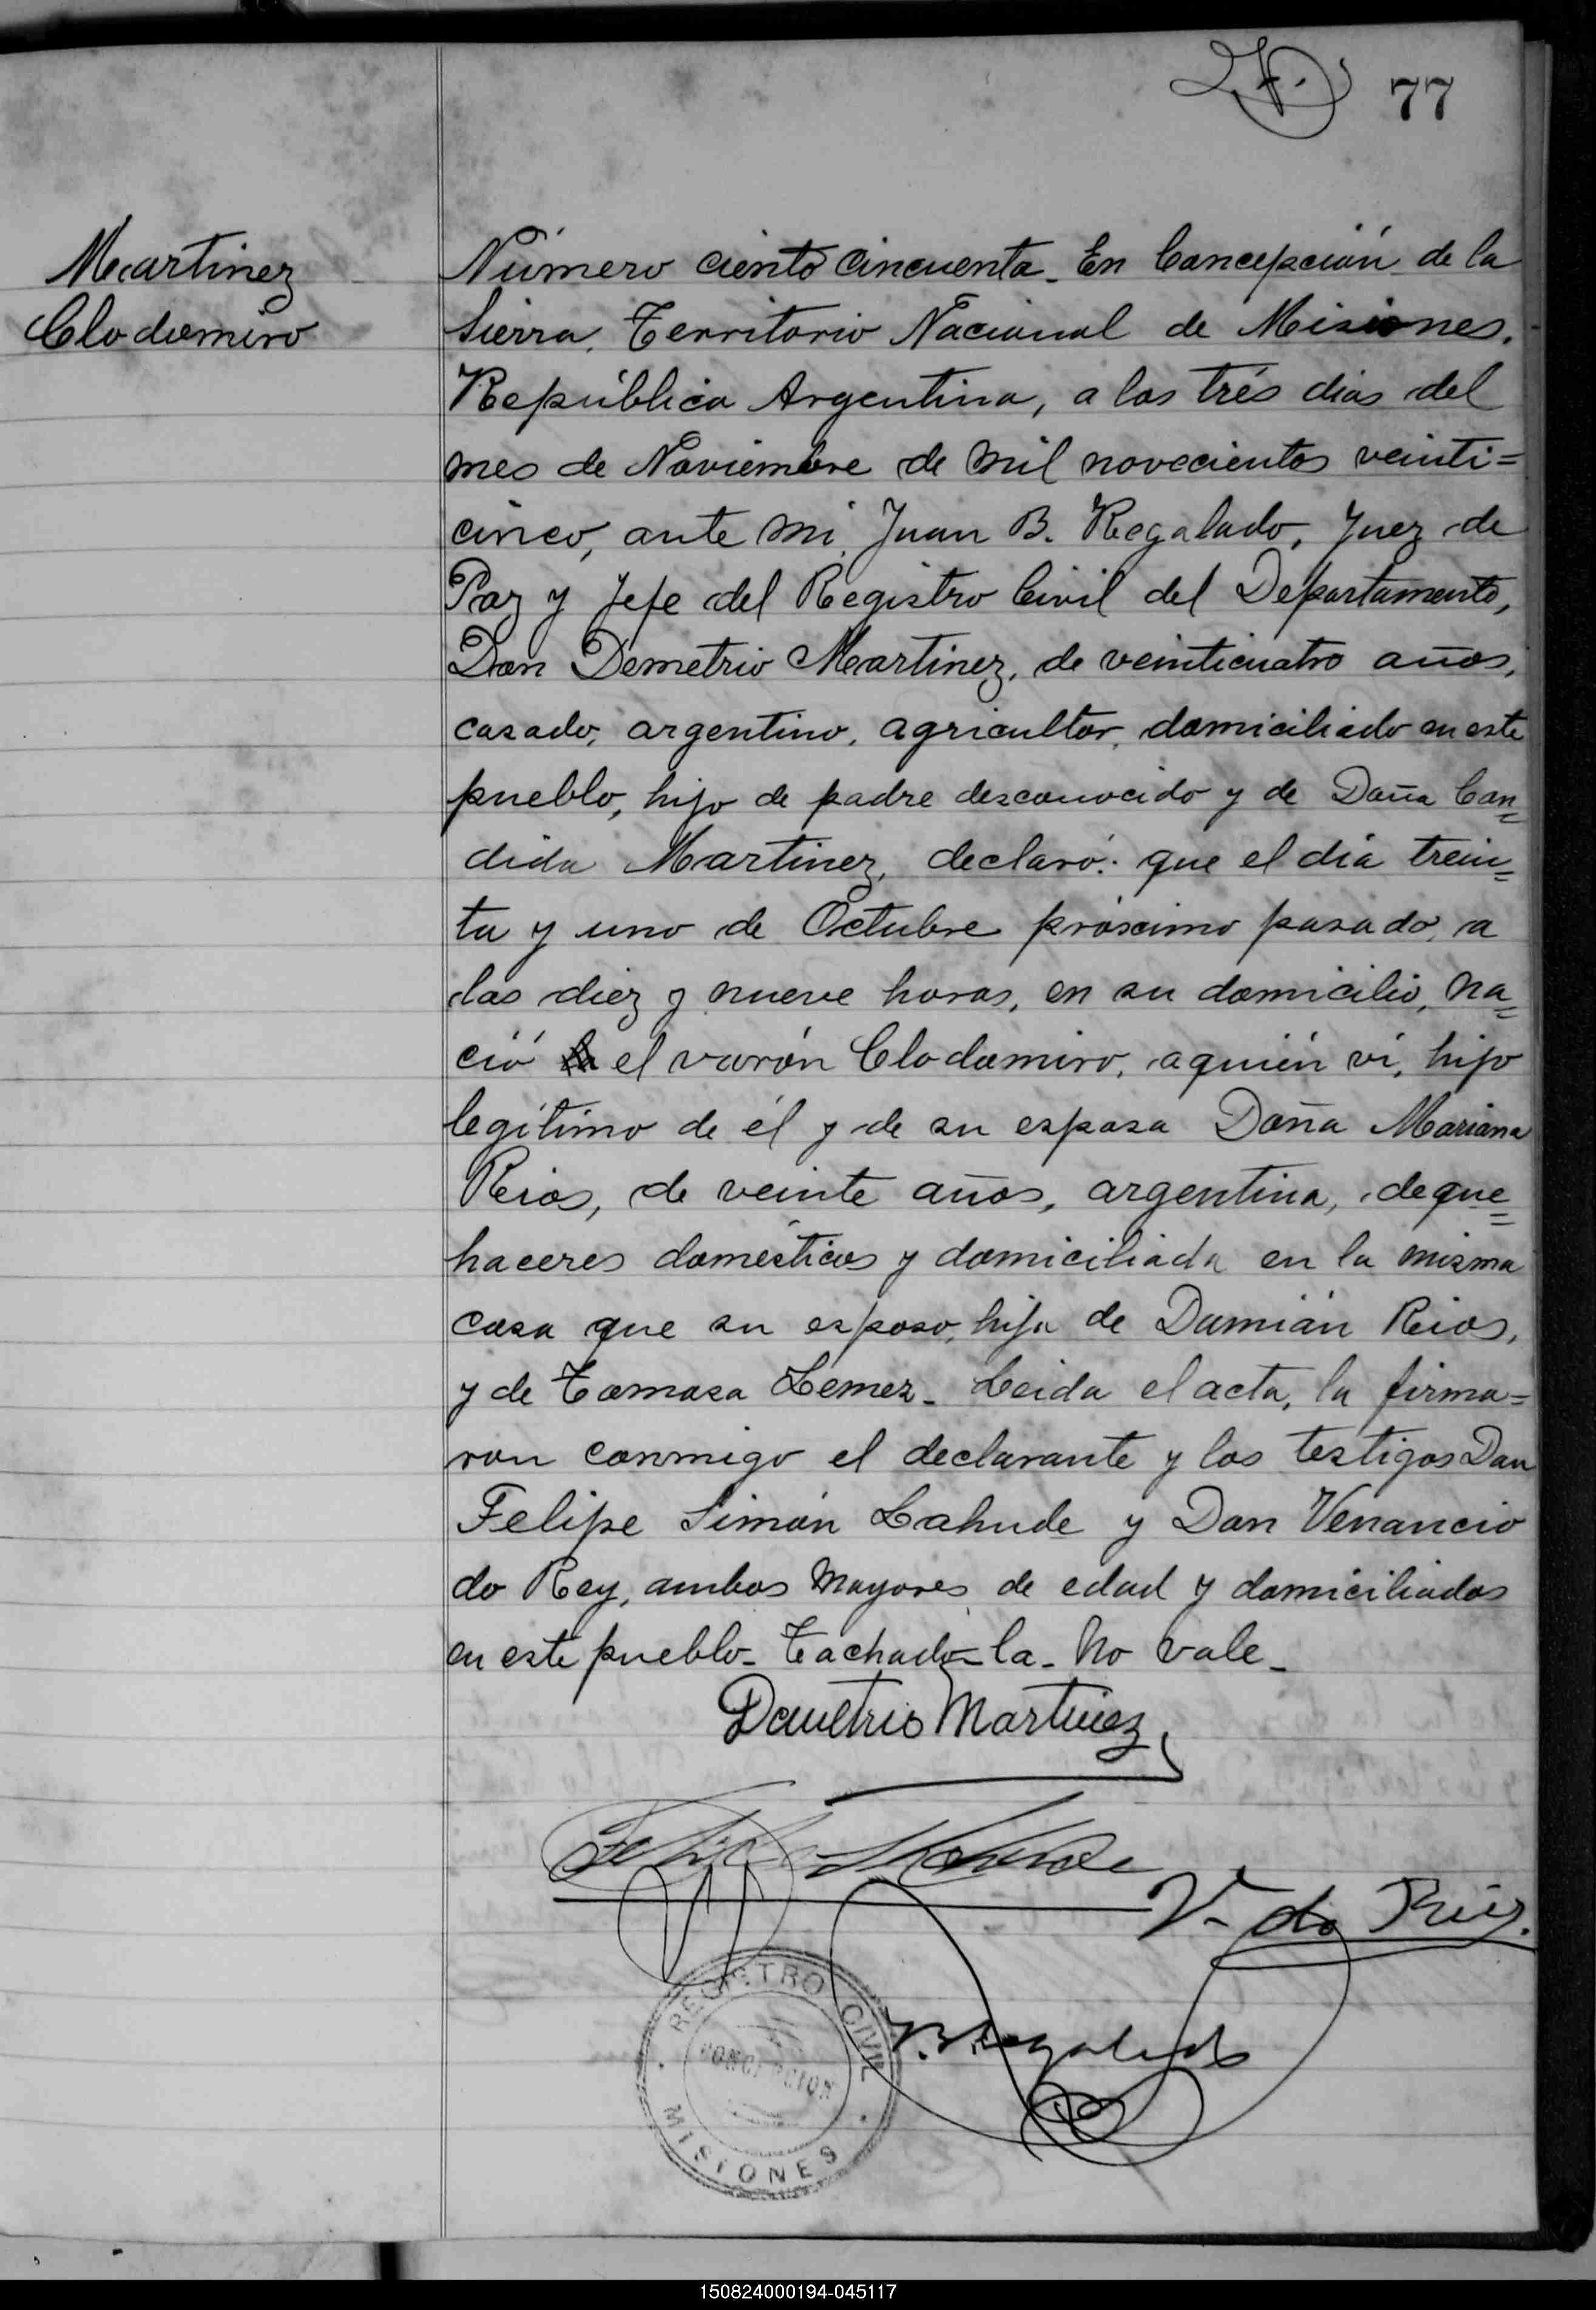 77
Martinez
Clodomiro
Número ciento cincuenta_ En Concepción de la
Sierra, Territorio Nacional de Misiones,
República Argentina, a los trés dias del
mes de Noviembre de mil novecientos veinti=
cinco, ante mi, Juan B. Regalado, Juez de
Paz y Jefe del Registro Civil del Departamento,
Don Demetrio Martinez, de veinticuatro años,
casado, argentino, agricultor, domiciliado en este
pueblo, hijo de padre desconocido y de Doña Can=
dida Martinez, declaró: que el dia trein=
ta y uno de Octubre próximo pasado, a
las diez y nueve horas, en su domicilio, na=
ció la el varón Clodomiro, a quién vi, hijo
legítimo de él y de su esposa Doña Mariana
Rios, de veinte años, argentina, de que=
haceres domésticos y domiciliada en la misma
casa que su esposo, hija de Damián Rios,
y de Tomasa Lemez_ Leida el acta, la firma=
ron conmigo el declarante y los testigos Don
Felipe Simón Lahude y Don Venancio
do Rey, ambos mayores de edad y domiciliados
en este pueblo_ Tachado=la_ No vale_
Demetrio Martinez
V. do Rey.
REGISTRO CIVIL
CONCEPCION
MISIONES
150824000194-045117